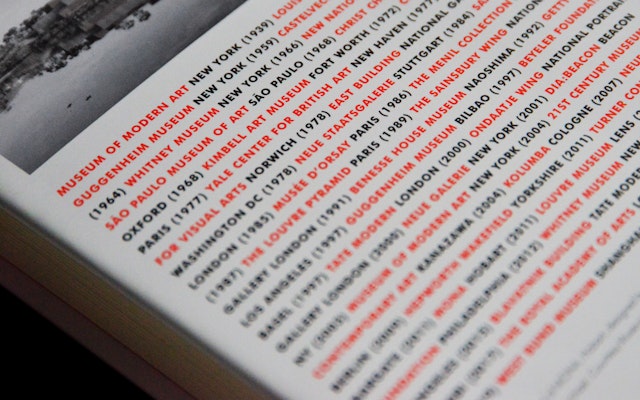 MUSEUM OF MODERN ART NEW YORK (1939)
GUGGENHEIM MUSEUM NEW YORK (1959)
(1964) WHITNEY MUSEUM NEW YORK (1966) NEW
SÃO PAULO MUSEUM OF ART SÃO PAULO (1968) CHRIST
OXFORD (1968) KIMBELL ART MUSEUM FORT WORTH
PARIS (1977) YALE CENTER FOR BRITISH ART NEW HAVEN (1977)
FOR VISUAL ARTS NORWICH (1978) EAST BUILDING NATIONAL
WASHINGTON DC (1978) NEUE STAATSGALERIE STUTTGART (1984)
LONDON (1985) MUSÉE D'ORSAY PARIS (1986) THE MENIL COLLECTION
(1987) THE LOUVRE PYRAMID PARIS (1989) THE SAINSBURY WING
GALLERY LONDON (1991) BENESSE HOUSE MUSEUM NAOSHIMA (1992)
LOS ANGELES (1997) GUGGENHEIM MUSEUM BILBAO (1997) BEYELER
BASEL (1997) TATE MODERN LONDON (2000) ONDAATJE WING NATIONAL
GALLERY LONDON (2000) NEUE GALERIE NEW YORK (2001) DIA:BEACON BEACON
NY (2003) MUSEUM OF MODERN ART NEW YORK (2004) 21ST CENTURY MUSEUM
CONTEMPORARY ART KANAZAWA (2004) KOLUMBA COLOGNE (2007)
BERLIN (2009) HEPWORTH WAKEFIELD YORKSHIRE (2011) TURNER
MARGATE (2011) MONA HOBART (2011) LOUVRE MUSEUM LENS
PHILADELPHIA (2012) WHITNEY MUSEUM NEW
BLAVATNIK BUILDING TATE
THE ROYAL ACADEMY OF ARTS
WEST BUND MUSEUM